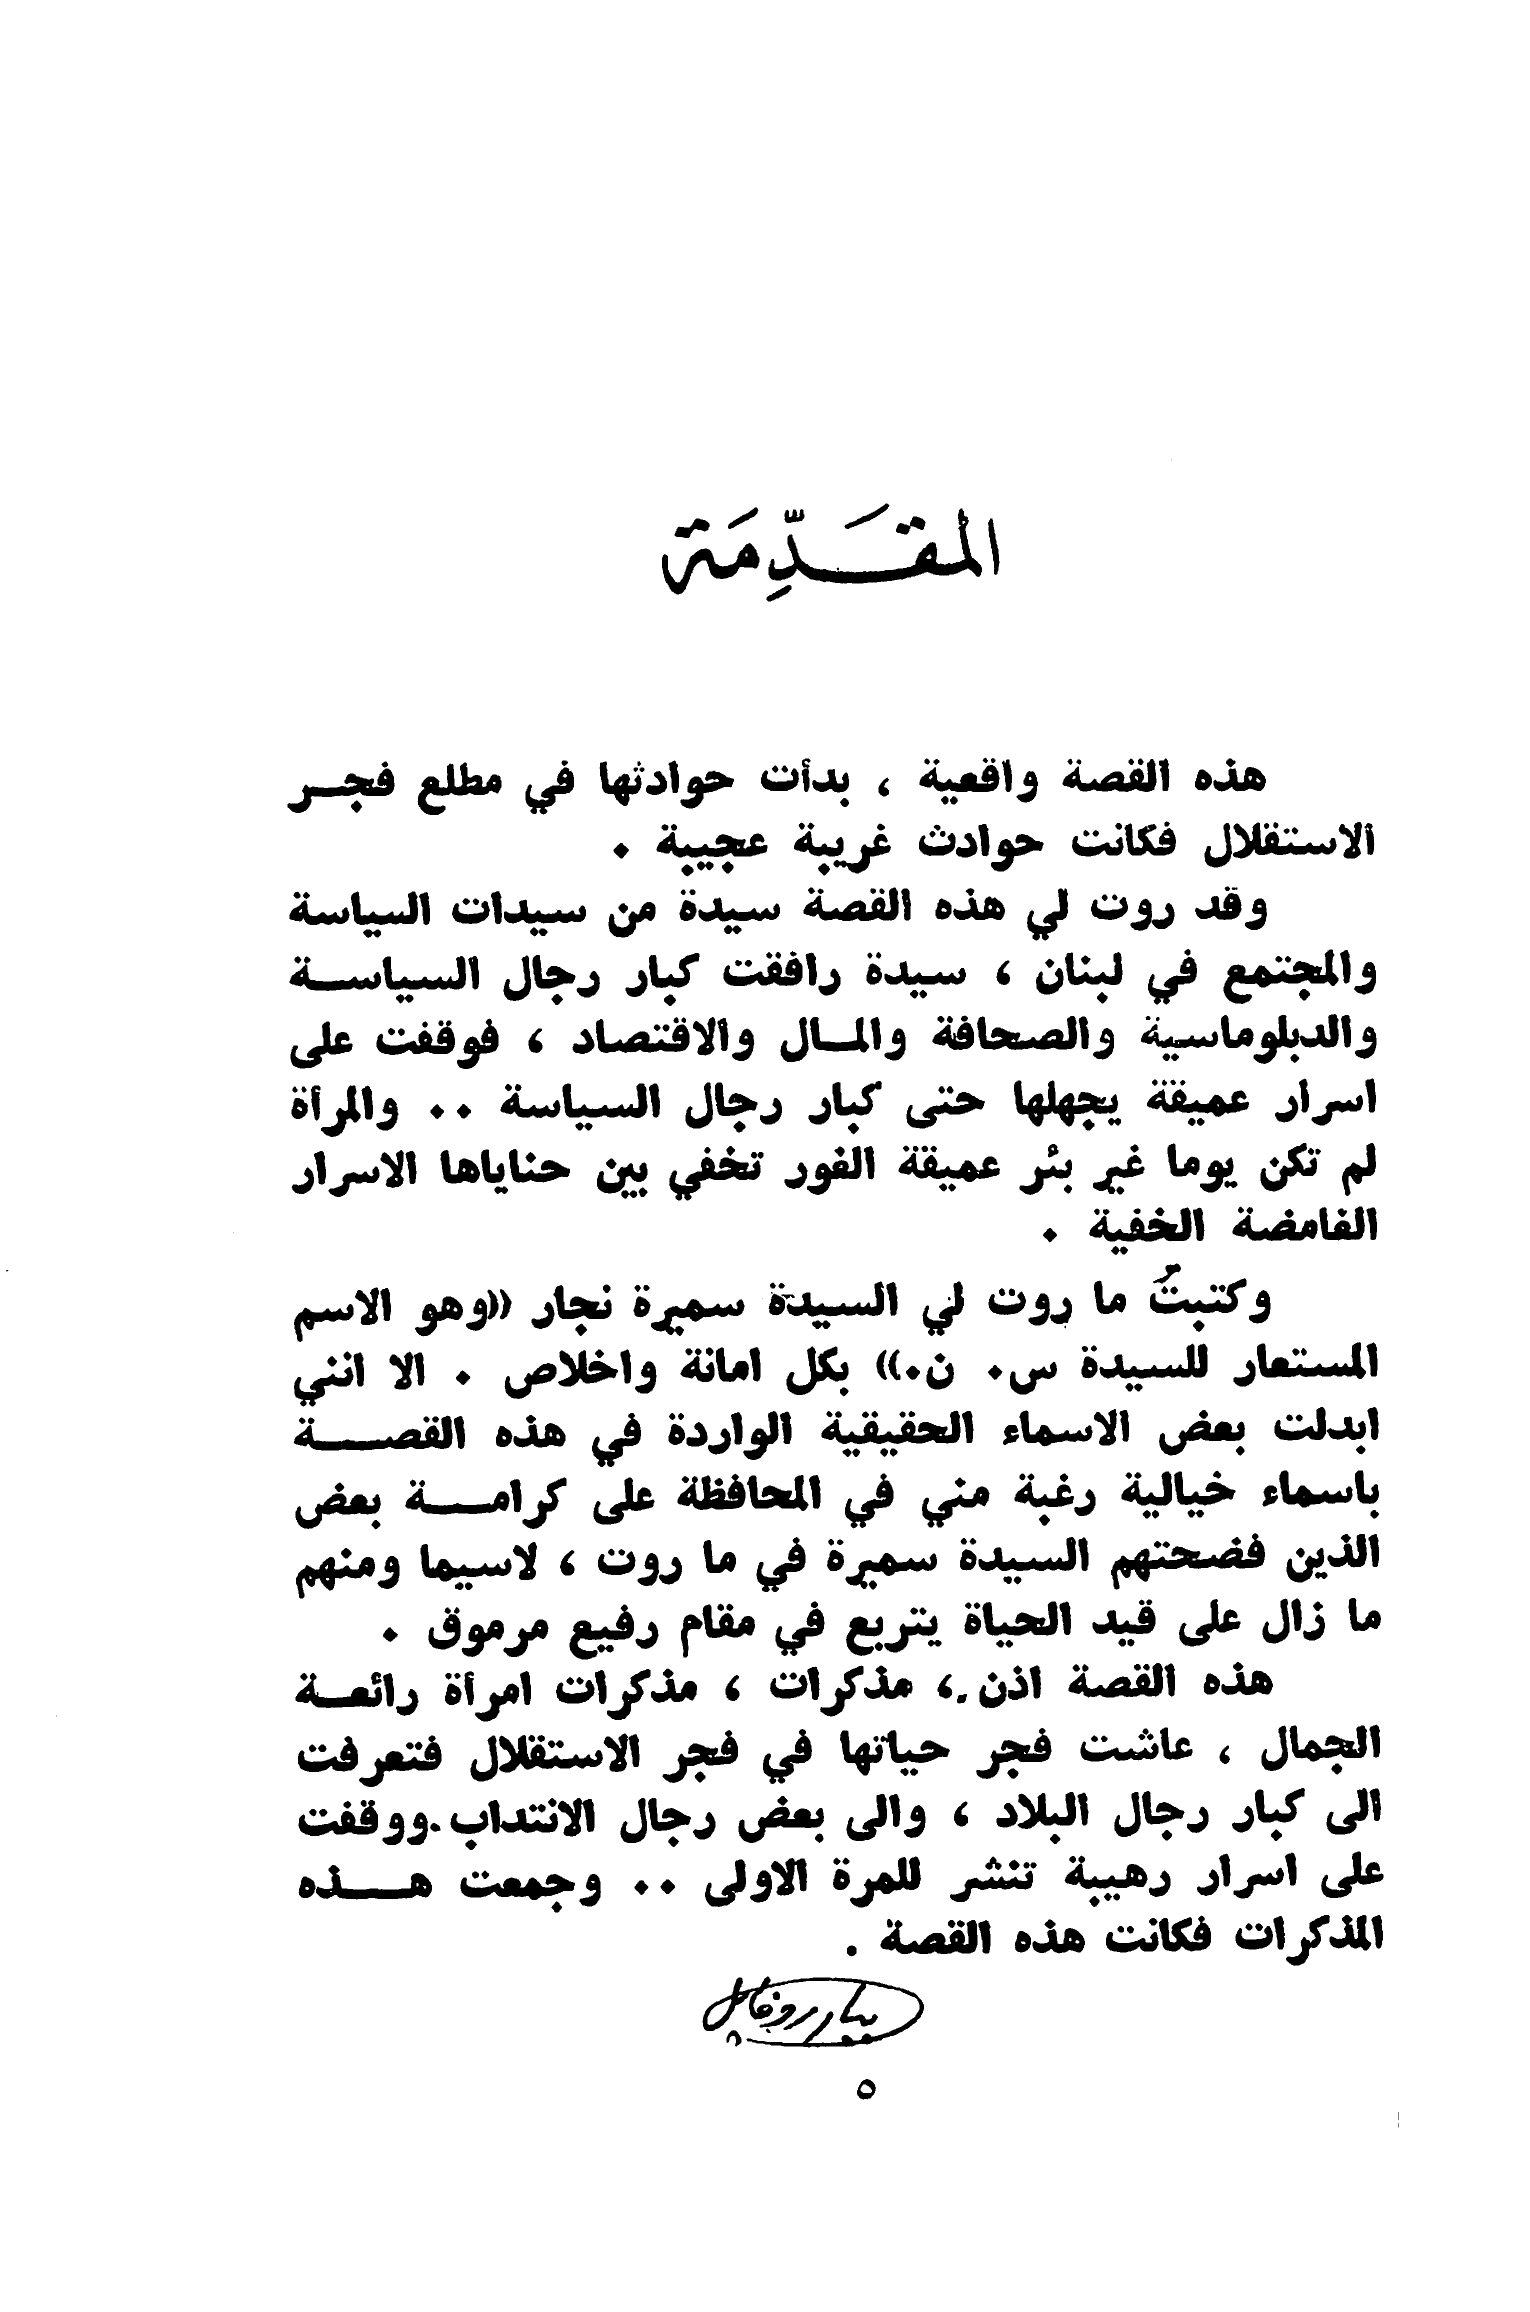 المقَدِّمَة
هذه القصة واقعية ، بدأت حوادثها في مطلع فجر
الاستقلال فكانت حوادث غريبة عجيبة .
وقد روت لي هذه القصة سيدة من سيدات السياسة
والمجتمع في لبنان ، سيدة رافقت كبار رجال السياسة
والدبلوماسية والصحافة والمال والاقتصاد ، فوقفت على
اسرار عميقة يجهلها حتى كبار رجال السياسة .. والمرأة
لم تكن يوما غير بئر عميقة الغور تخفي بين حناياها الاسرار
الغامضة الخفية .
وكتبتُ ما روت لي السيدة سميرة نجار ((وهو الاسم
المستعار للسيدة س. ن.)) بكل امانة واخلاص . الا انني
ابدلت بعض الاسماء الحقيقية الواردة في هذه القصة
باسماء خيالية رغبة مني في المحافظة على كرامة بعض
الذين فضحتهم السيدة سميرة في ما روت ، لاسيما ومنهم
ما زال على قيد الحياة يتربع في مقام رفيع مرموق .
هذه القصة اذن ، مذكرات ، مذكرات امرأة رائعة
الجمال ، عاشت فجر حياتها في فجر الاستقلال فتعرفت
الى كبار رجال البلاد ، والى بعض رجال الانتداب .ووقفت
على اسرار رهيبة تنشر للمرة الاولى .. وجمعت هذه
المذكرات فكانت هذه القصة .
بيار روفايل
٥